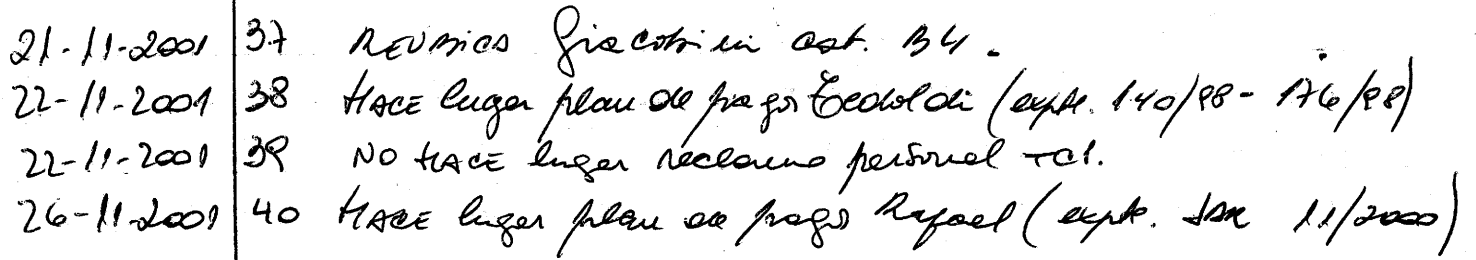 21-11-2001 37 REUBICA Giacobini cat. B4.
22-11-2001 38 HACE lugar plan de pagos Tedoldi (expte. 140/98 - 176/98)
22-11-2001 39 NO HACE lugar reclamo personal TCI.
26-11-2001 40 HACE lugar plan de pagos Rafael (expte. 11/2000)